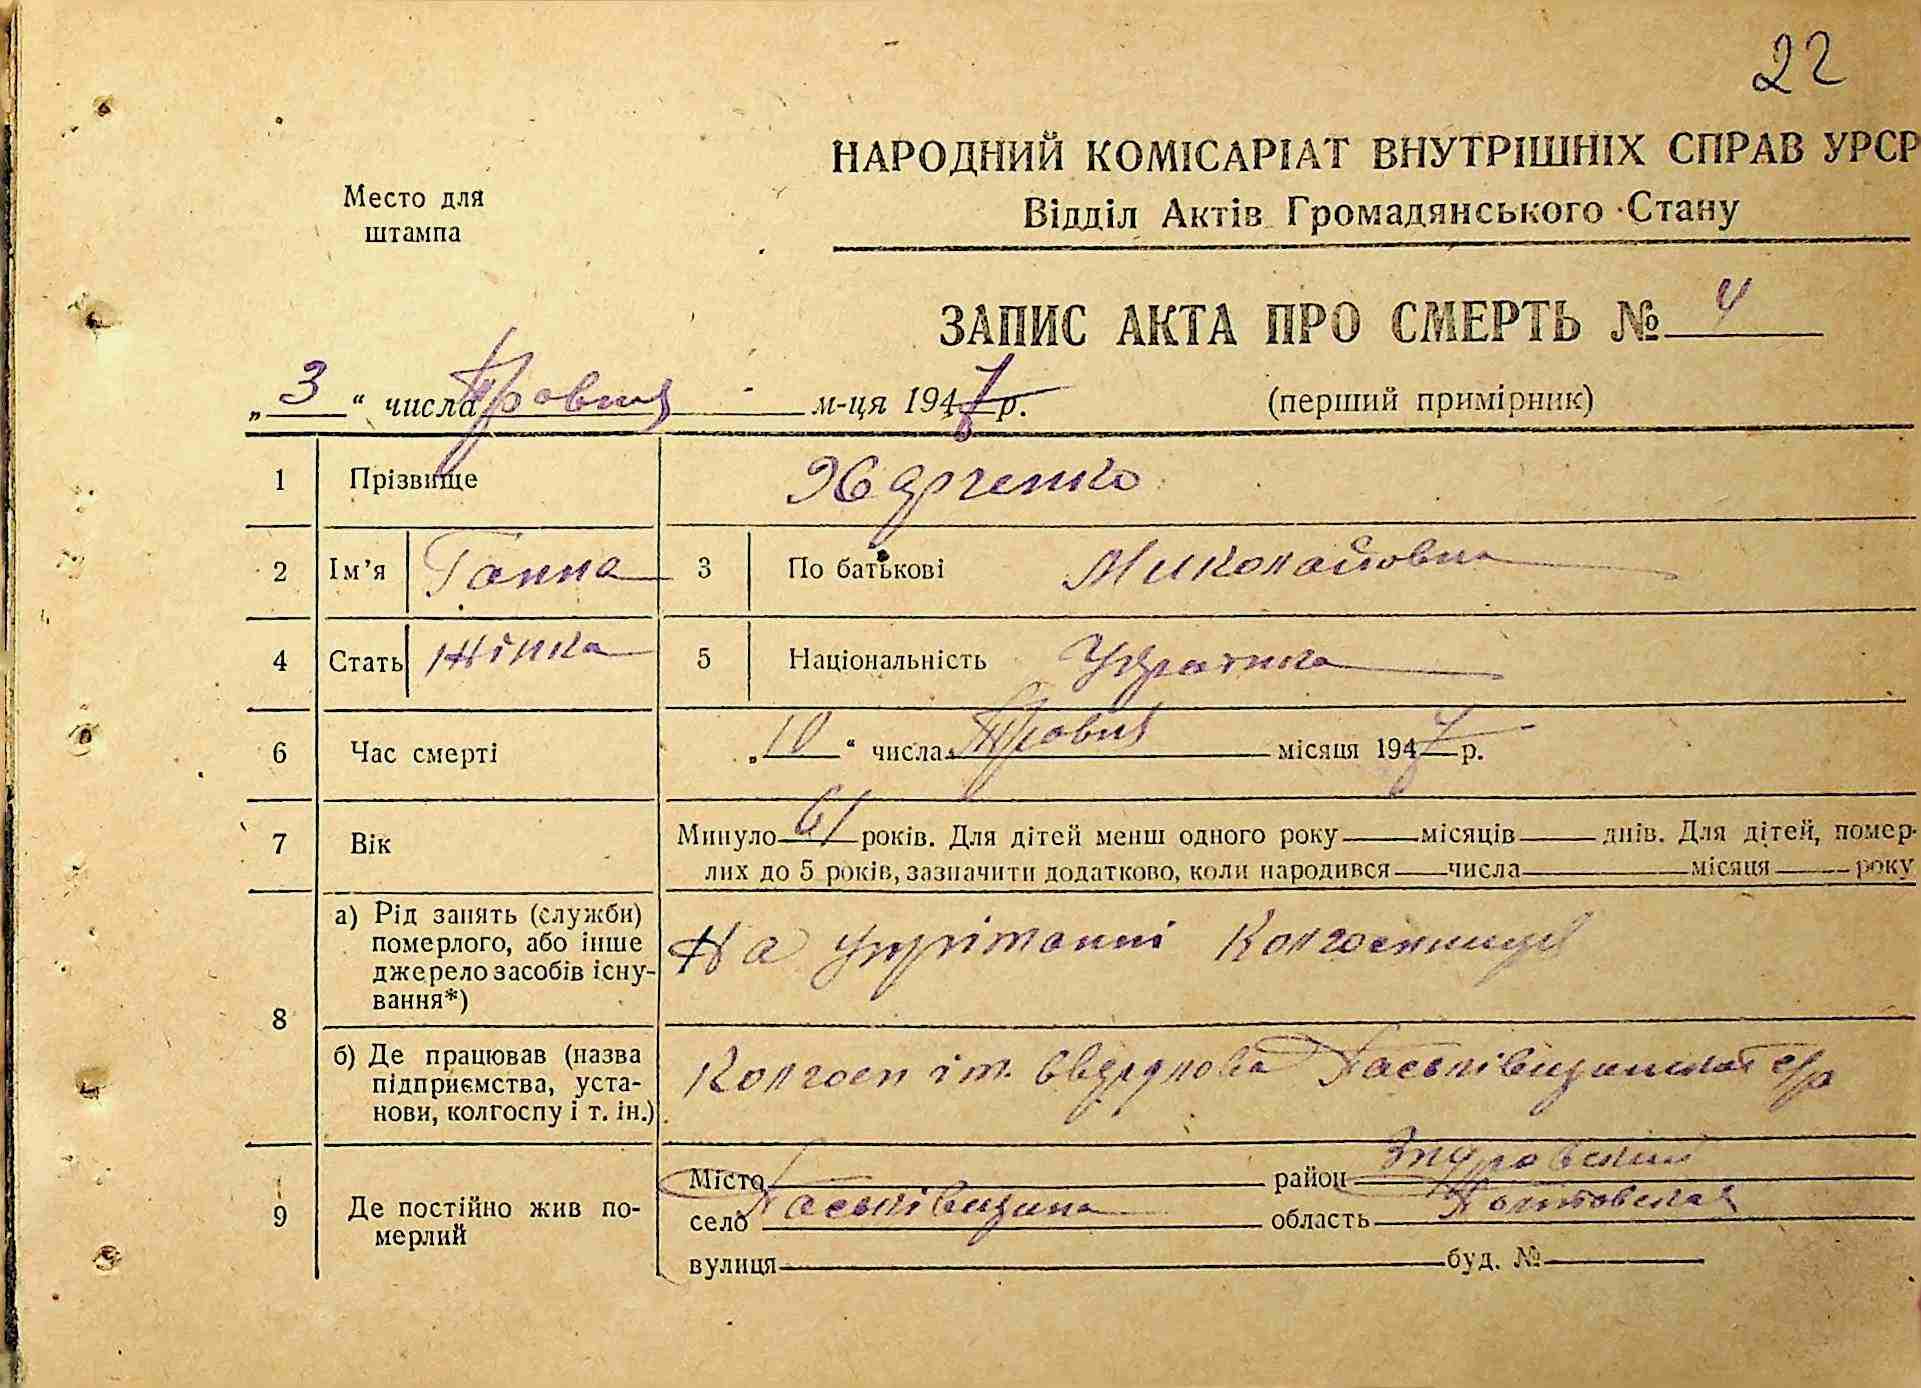 22
НАРОДНИЙ КОМІСАРІАТ ВНУТРІШНІХ СПРАВ УРСР
Место для
штампа
Відділ Актів Громадянського Стану
ЗАПИС АКТА ПРО СМЕРТЬ № 4
„3“ числа Травня м-ця 1947 р. (перший примірник)
1 Прізвище
2 Ім'я Ганна 3 По батькові Миколаївна
4 Стать Жінка 5 Національність Українка
6 Час смерті „10“ числа Травня місяця 1947 р.
7 Вік Минуло 61 років. Для дітей менш одного року місяців днів. Для дітей, помер-
лих до 5 років, зазначити додатково, коли народився числа місяця року
8 а) Рід занять (служби)
померлого, або інше
джерело засобів існу-
вання*) На утрітанні Колгоспниця
б) Де працював (назва
підприємства, уста-
нови, колгоспу і т. ін.) Колгосп ім. Свердлова Паськівщинской с/р
9 Де постійно жив по-
мерлий
Місто район Згуровский
село Паськівщина область Полтовская
вулиця буд. №